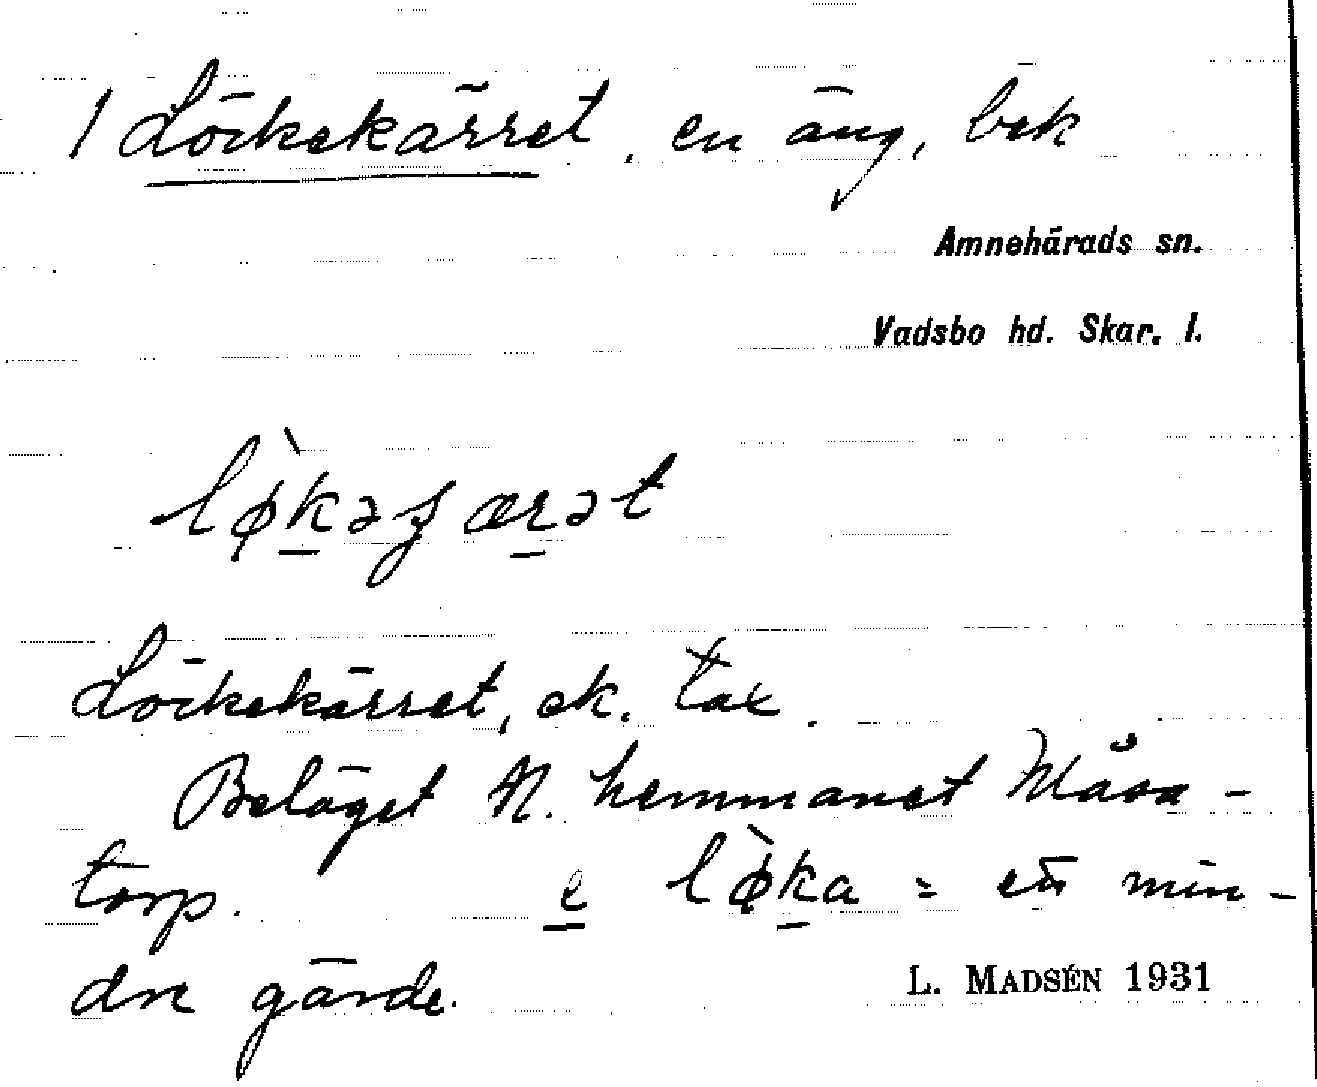 1 Lökekärret, en äng, bek
Amnehärads sn.
Vadsbo hd. Skar. l.
lø̀kəʒærət
Lökekärret, ek. tax.
Beläget N. hemmanet Måsa-
torp. e lø̀ka = en min-
dre gärde.
L. MADSÉN 1931